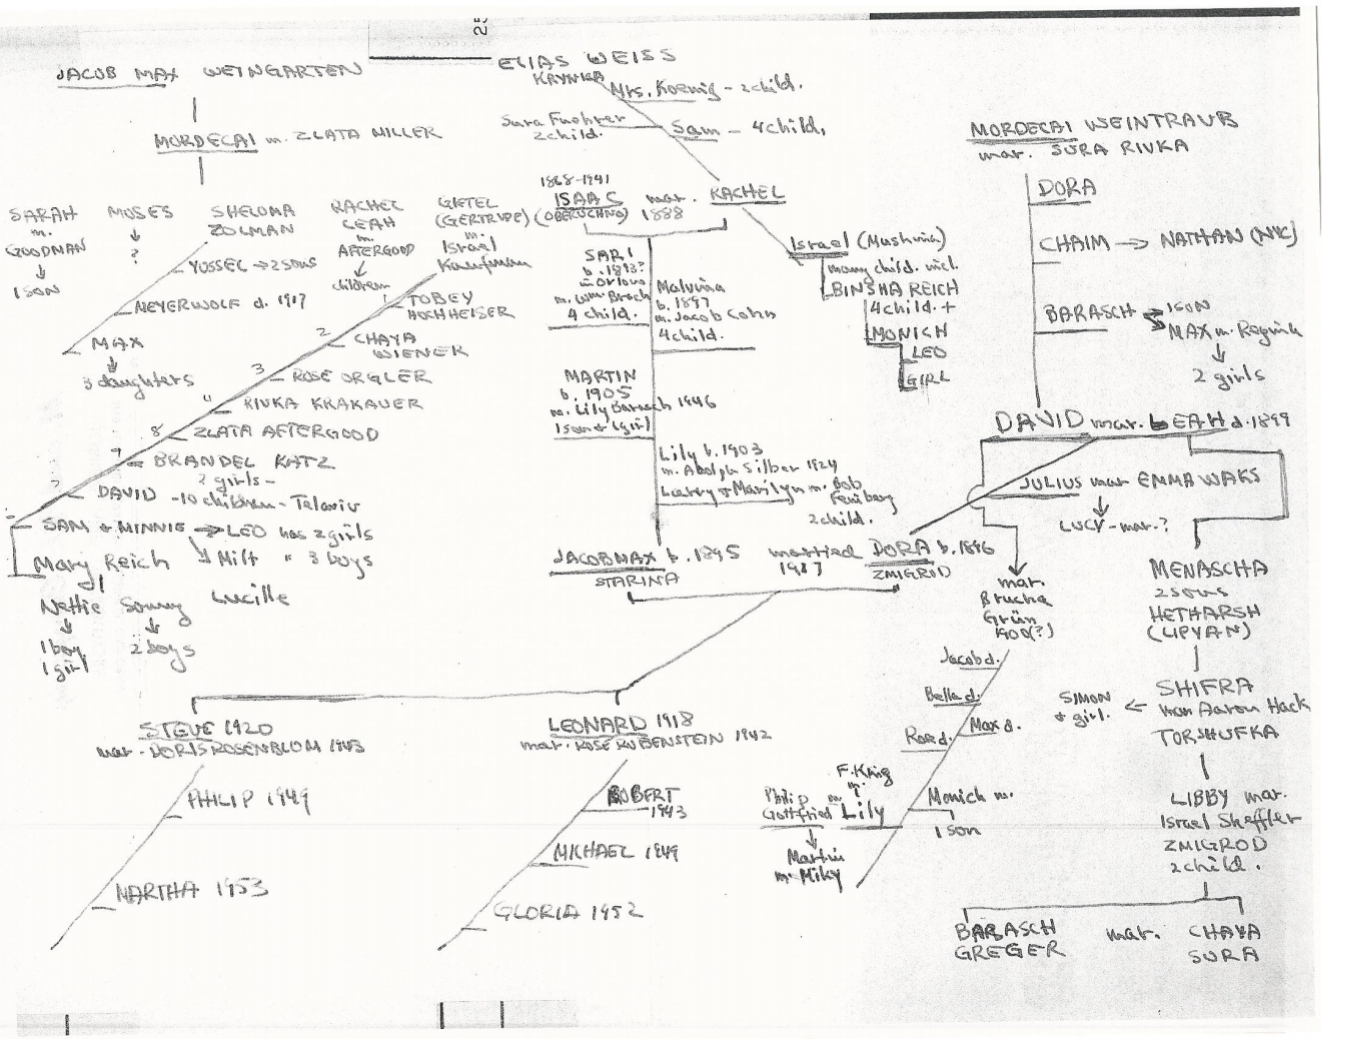 25
JACOB MAX WEINGARTEN
ELIAS WEISS
KRYNKA
Mrs. Koenig - 2 child.
Sura Fuehrer
2 child.
Sam - 4 child.
MORDECAI m. ZLATA MILLER
MORDECAI WEINTRAUB
mar. SURA RIVKA
SARAH
m.
GOODMAN
1 SON
MOSES
?
SHELOMA
ZOLMAN
YUSSEL → 2 sons
MEYERWOLF d. 1917
MAX
3 daughters
RACHEL
LEAH
m.
AFTERGOOD
children
GIETEL
(GERTRUDE)
m.
Israel
Kaufman
1 TOBEY
HOCHHEISER
2 CHAYA
WIENER
3 ROSE ORGLER
4 RIVKA KRAKAUER
8 ZLATA AFTERGOOD
BRANDEL KATZ
2 girls -
DAVID - 10 children - Telaviv
SAM + MINNIE → LEO has 2 girls
Milt " 3 boys
Mary Reich
Nettie
1 boy
1 girl
Sonny
2 boys
Lucille
1868-1941
ISAAC mar. RACHEL
(OBERUCHNO) 1888
SARI
b. 1893?
m. Wm Broch
4 child.
Malvina
b. 1897
m. Jacob Cohn
4 child.
MARTIN
b. 1905
m. Lily Barasch 1946
1 son + 1 girl
Lily b. 1903
m. Adolph Silber 1924
Larry + Marilyn m. Bob
Feinberg
2 child.
Israel (Mushina)
many child. incl.
BINSHA REICH
4 child. +
MONICH
LEO
GIRL
DORA
CHAIM → NATHAN (NYC)
BARASCH → 1 SON
MAX m. Regina
2 girls
DAVID mar. LEAH d. 1899
JULIUS mar EMMA WAKS
LUCY - mar. ?
JACOB MAX b. 1895 married DORA b. 1896
STARINA 1917 ZMIGROD
mar.
Brucha
Grün
1900(?)
Jacob d.
Bella d.
Max d.
Rose d.
Monich m.
1 son
F. Krig
m.
Philip m. Lily
Gottfried
Martin
m. Miky
MENASCHA
2 sons
HETHARSH
(LIPYAN)
SHIFRA
mar Aaron Hack
TORSHUFKA
SIMON
+ girl.
LIBBY mar.
Israel Sheffler
ZMIGROD
2 child.
BARASCH mar. CHAYA
GREGER SURA
STEVE 1920
mar - DORIS ROSENBLOM 1943
PHILIP 1949
MARTHA 1953
LEONARD 1918
mar. ROSE RUBENSTEIN 1942
ROBERT
1943
MICHAEL 1949
GLORIA 1952